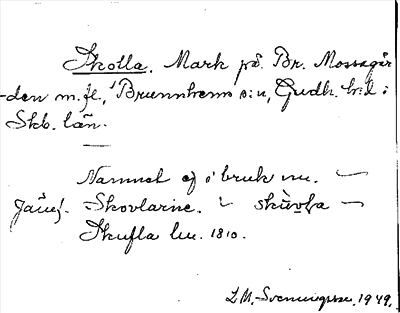 Skolla. Mark på Br. Mossagår
-den m.fl., Brunnhems s:n, Gudh. h:d i
Skb. län.
Namnet ej i bruk nu.
Jämf. Skovlarne. skùvḷa
Skufla lm. 1810.
L M.-Svenungsson. 1949.